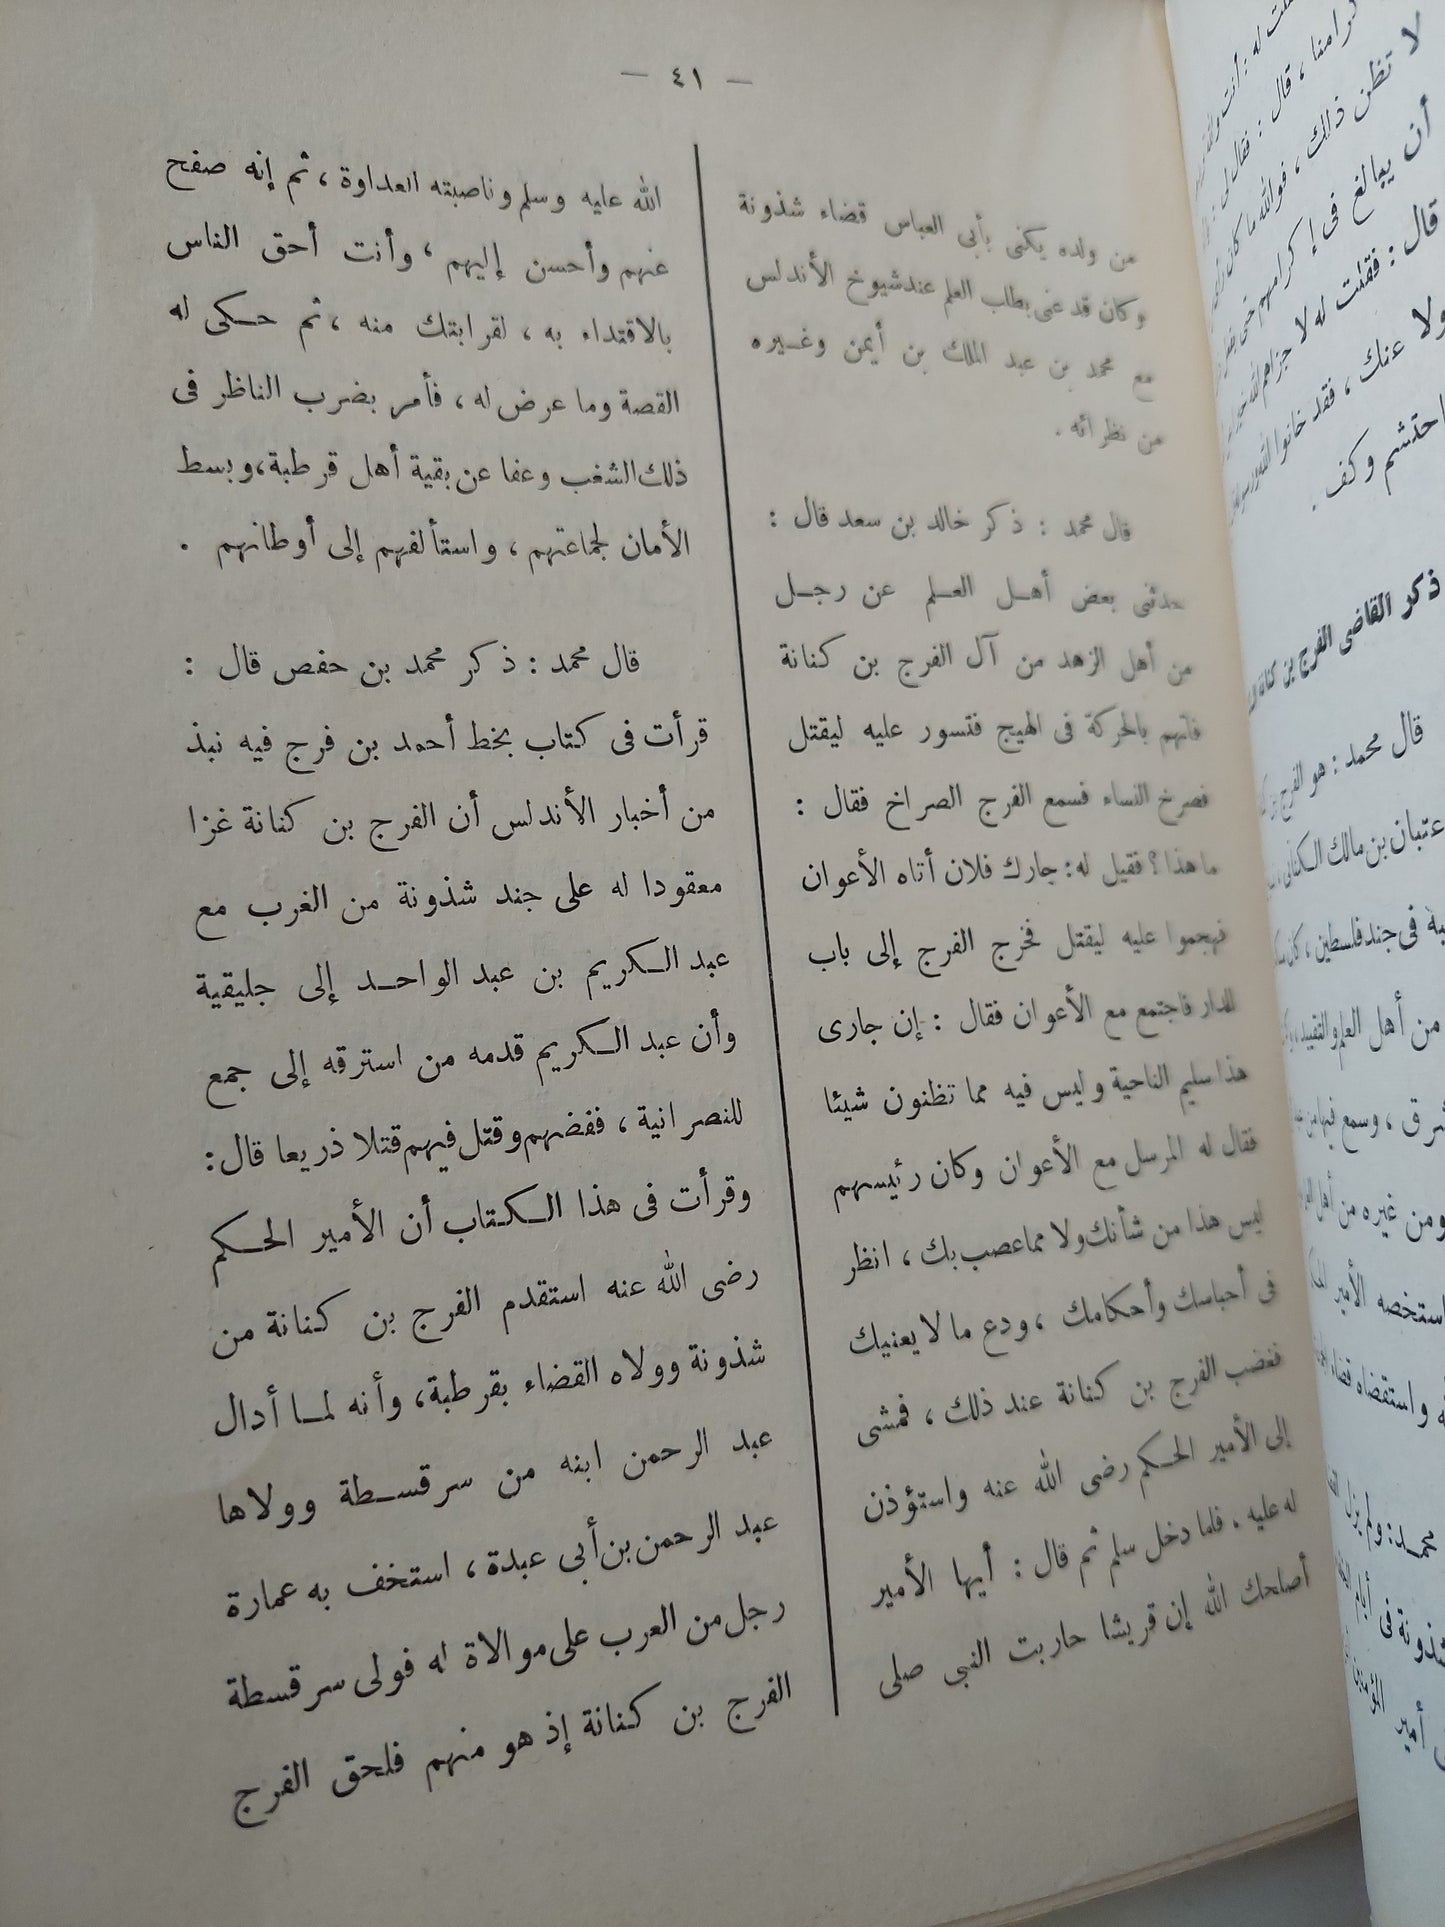 — ٤١ —
من ولده يكنى بأبى العباس قضاء شذونة
وكان قد عنى بطلب العلم عند شيوخ الأندلس
مع محمد بن عبد الملك بن أيمن وغيره
من نظرائه .
قال محمد : ذكر خالد بن سعد قال :
حدثنى بعض أهل العلم عن رجل
من أهل الزهد من آل الفرج بن كنانة
فاتهم بالحركة فى الهيج فتسور عليه ليقتل
فصرخ النساء فسمع الفرج الصراخ فقال :
ما هذا ؟ فقيل له : جارك فلان أتاه الأعوان
فهجموا عليه ليقتل فخرج الفرج إلى باب
الدار فاجتمع مع الأعوان فقال : إن جارى
هذا سليم الناحية وليس فيه مما تظنون شيئا
فقال له المرسل مع الأعوان وكان رئيسهم
ليس هذا من شأنك ولا مما عصب بك ، انظر
فى أحباسك وأحكامك ، ودع ما لا يعنيك
فغضب الفرج بن كنانة عند ذلك ، فمشى
إلى الأمير الحكم رضى الله عنه واستؤذن
له عليه ، فلما دخل سلم ثم قال : أيها الأمير
أصلحك الله إن قريشا حاربت النبى صلى
الله عليه وسلم وناصبته العداوة ، ثم إنه صفح
عنهم وأحسن إليهم ، وأنت أحق الناس
بالاقتداء به ، لقرابتك منه ، ثم حكى له
القصة وما عرض له ، فأمر بضرب الناظر فى
ذلك الشغب وعفا عن بقية أهل قرطبة ، وبسط
الأمان لجماعتهم ، واستألفهم إلى أوطانهم .
قال محمد : ذكر محمد بن حفص قال :
قرأت فى كتاب بخط أحمد بن فرج فيه نبذ
من أخبار الأندلس أن الفرج بن كنانة غزا
معقودا له على جند شذونة من الغرب مع
عبد الكريم بن عبد الواحد إلى جليقية
وأن عبد الكريم قدمه من استرقه إلى جمع
للنصرانية ، ففضهم وقتل فيهم قتلا ذريعا قال :
وقرأت فى هذا الكتاب أن الأمير الحكم
رضى الله عنه استقدم الفرج بن كنانة من
شذونة وولاه القضاء بقرطبة ، وأنه لما أدال
عبد الرحمن ابنه من سرقسطة وولاها
عبد الرحمن بن أبى عبدة ، استخف به عمارة
رجل من العرب على موالاة له فولى سرقسطة
الفرج بن كنانة إذ هو منهم فلحق الفرج
لا تظن ذلك ، فوالله ما كان
أن يبالغ فى إكرامهم حتى
قال : فقلت له لا جزاهم الله خيرا
ولا عنك ، فقد خانوا الله ورسوله
احتشم وكف .
ذكر القاضى الفرج بن كنانة
قال محمد : هو الفرج بن
عتبان بن مالك الكنانى ،
فى جند فلسطين ، كان
من أهل العلم والتقييد ،
، وسمع فيها من
ومن غيره من أهل
استخصه الأمير
واستقضاه قضاء
محمد : ولم يزل
شذونة فى أيام
أمير المؤمنين